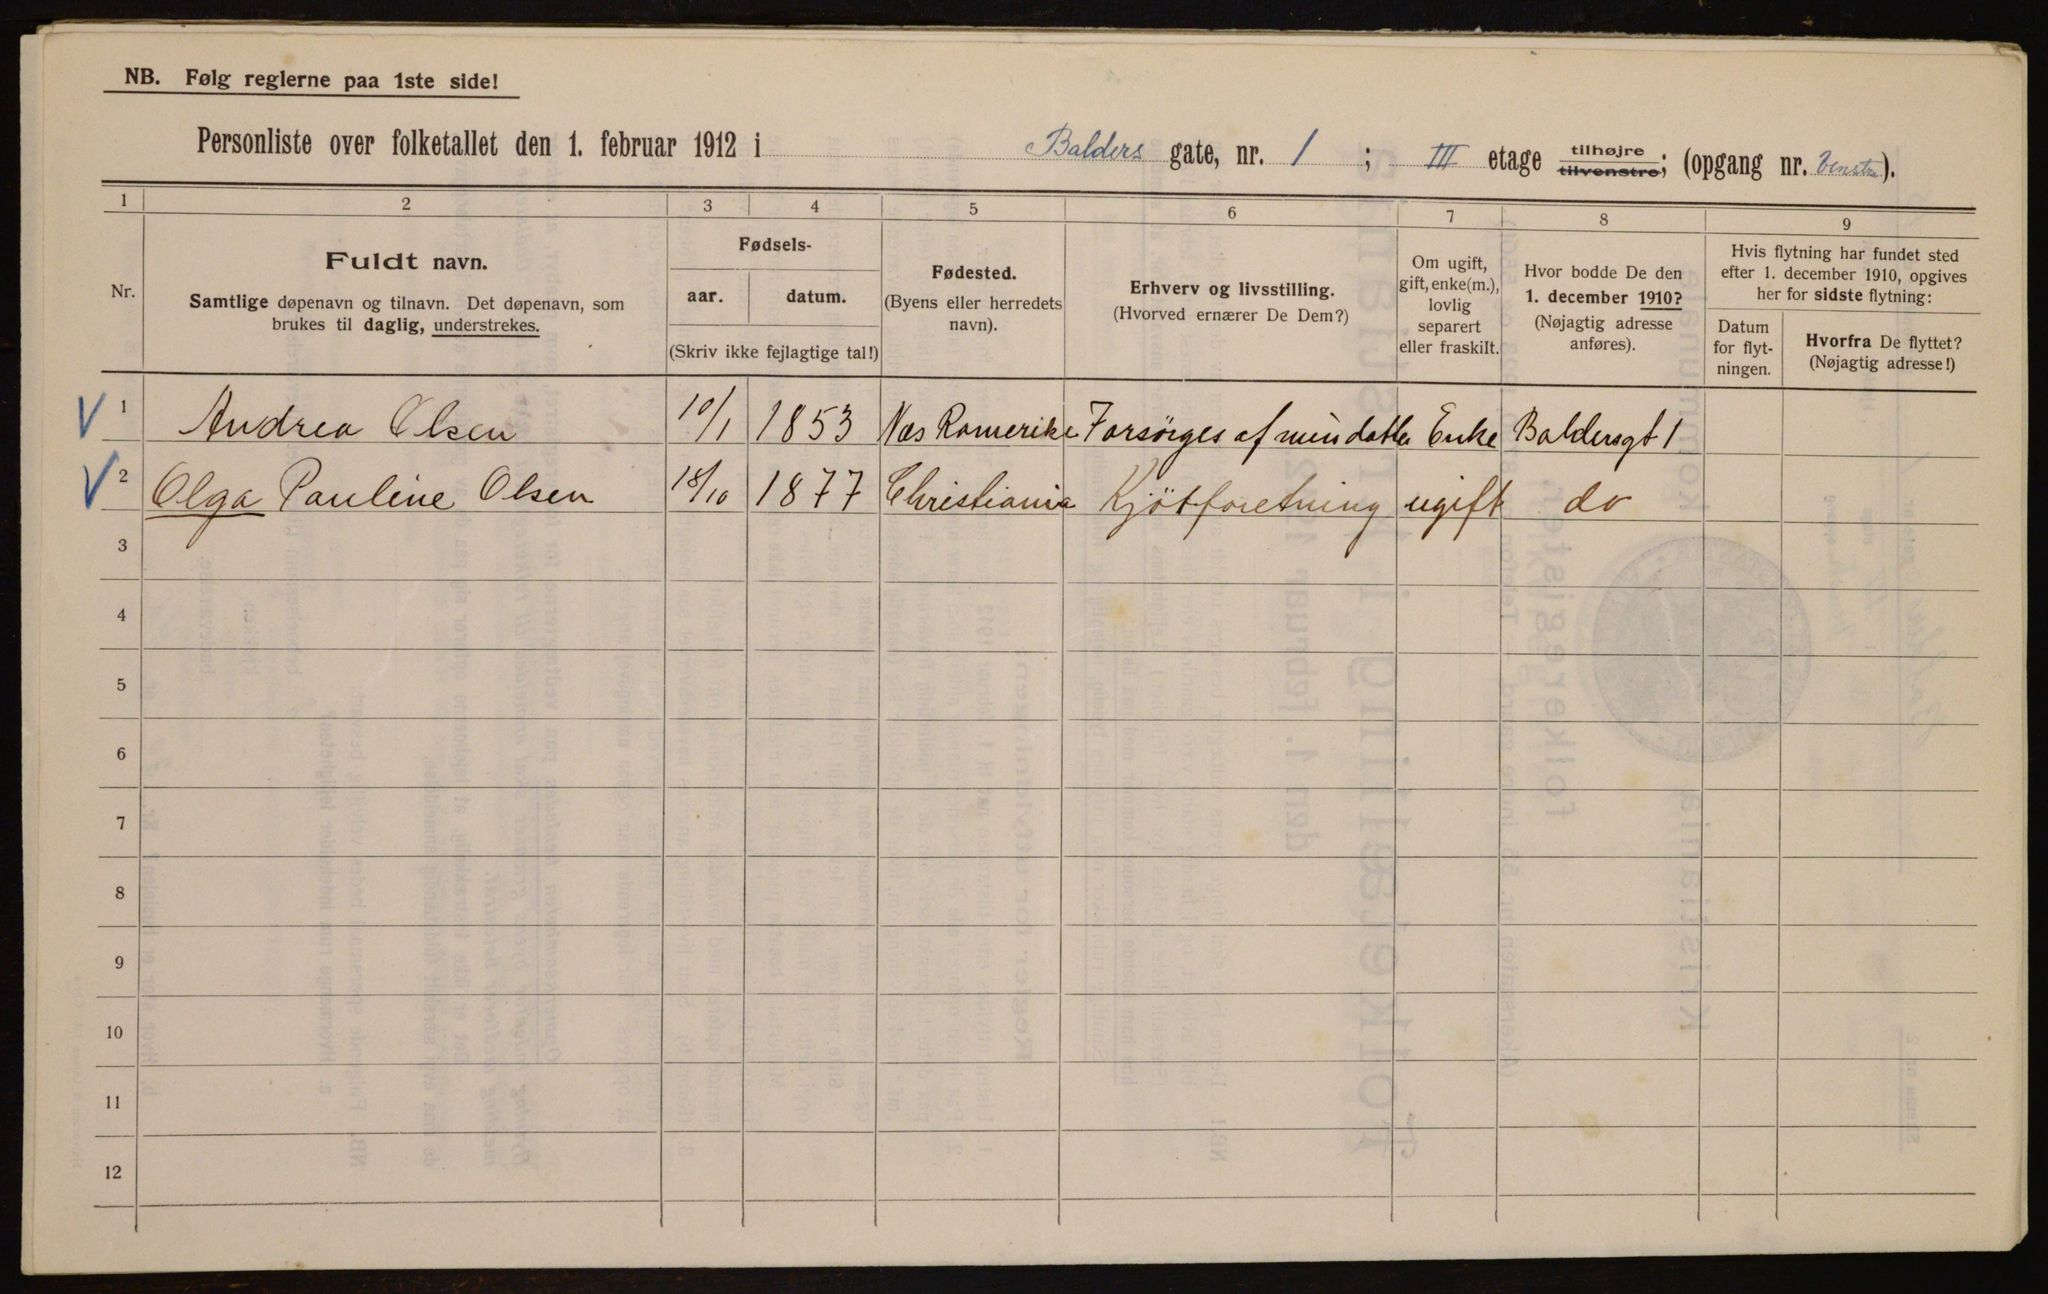 NB. Følg reglerne paa 1ste side!
Personliste over folketallet den 1. februar 1912 i Balders gate, nr. 1 ; III etage tilhøjre tilvenstre; (opgang nr. Venstre).
1 2 3 4 5 6 7 8 9
Nr.
Fuldt navn.
Samtlige døpenavn og tilnavn. Det døpenavn, som
brukes til daglig, understrekes.
Fødsels-
aar. datum.
(Skriv ikke fejlagtige tal!)
Fødested.
(Byens eller herredets
navn).
Erhverv og livsstilling.
(Hvorved ernærer De Dem?)
Om ugift,
gift, enke(m.),
lovlig
separert
eller fraskilt.
Hvor bodde De den
1. december 1910?
(Nøjagtig adresse
anføres).
Hvis flytning har fundet sted
efter 1. december 1910, opgives
her for sidste flytning:
Datum
for flyt-
ningen.
Hvorfra De flyttet?
(Nøjagtig adresse!)
V 1 Andrea Olsen 10/1 1853 Næs Romerike Forsørges af min datter Enke Baldersgt 1
V 2 Olga Pauline Olsen 18/10 1877 Christiania Kjøtforetning ugift do
3
4
5
6
7
8
9
10
11
12